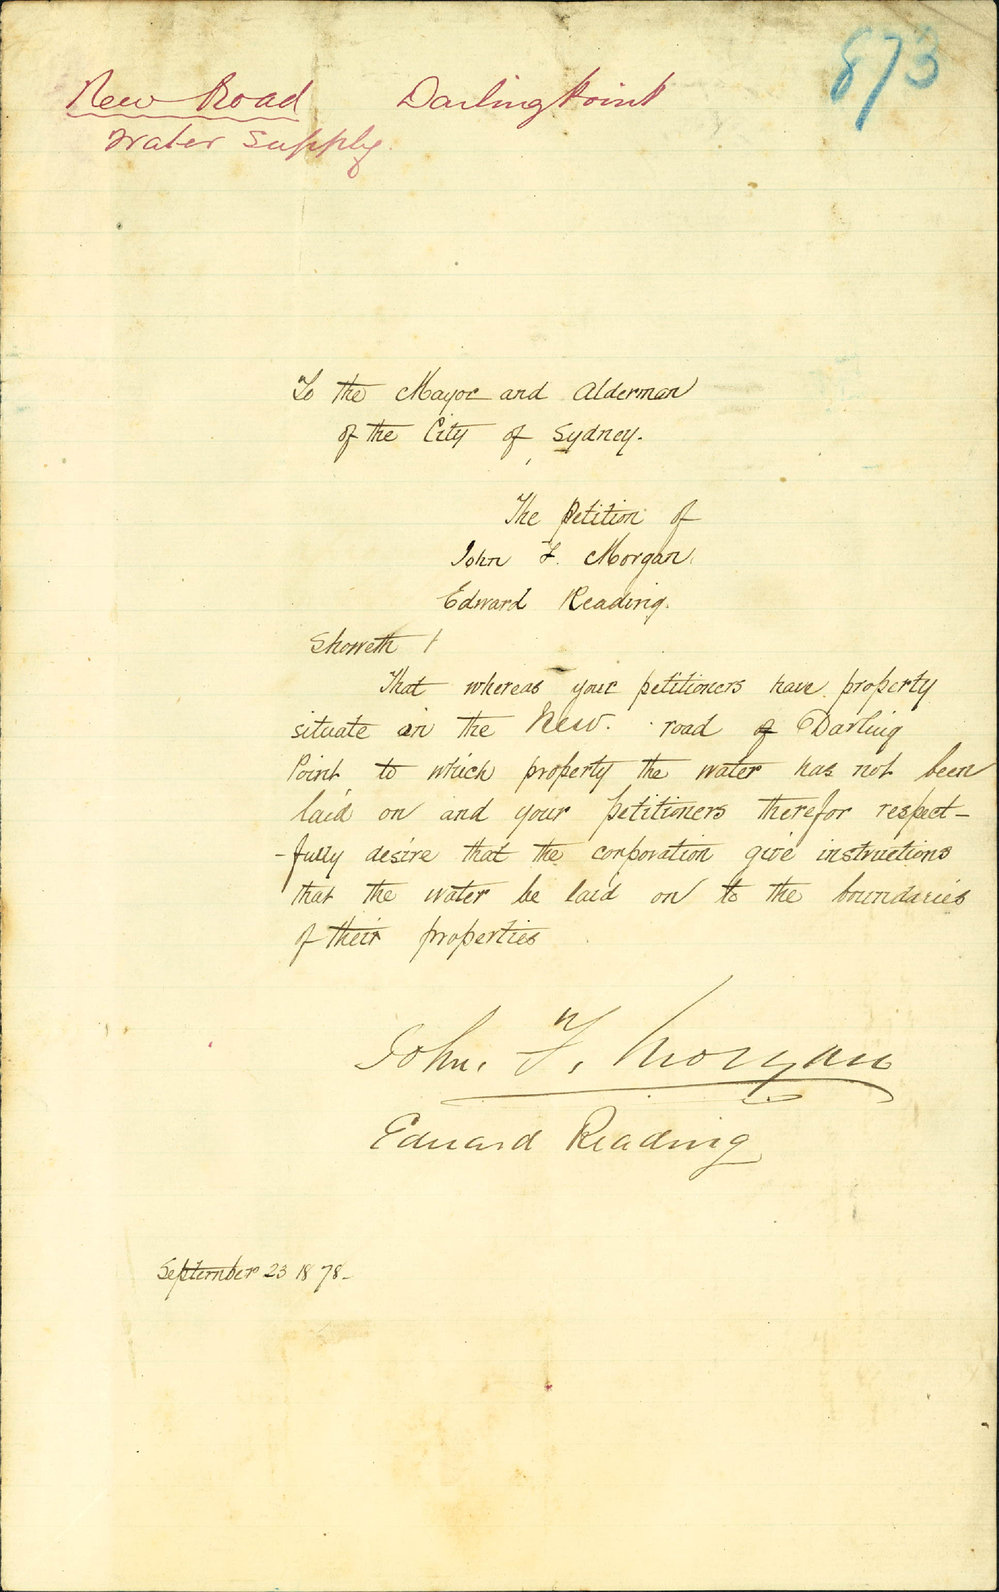 873
New Road Darling Point
Water Supply.
To the Mayor and Alderman
of the City of Sydney.
The Petition of
John F. Morgan.
Edward Reading.
Showeth /
That whereas your petitioners have property
situate in the New. road of Darling
Point to which property the water has not been
laid on and your petitioners therefor respect-
-fully desire that the corporation give instructions
that the water be laid on to the boundaries
of their properties
John. F. Morgan
Edward Reading
September 23 1878-